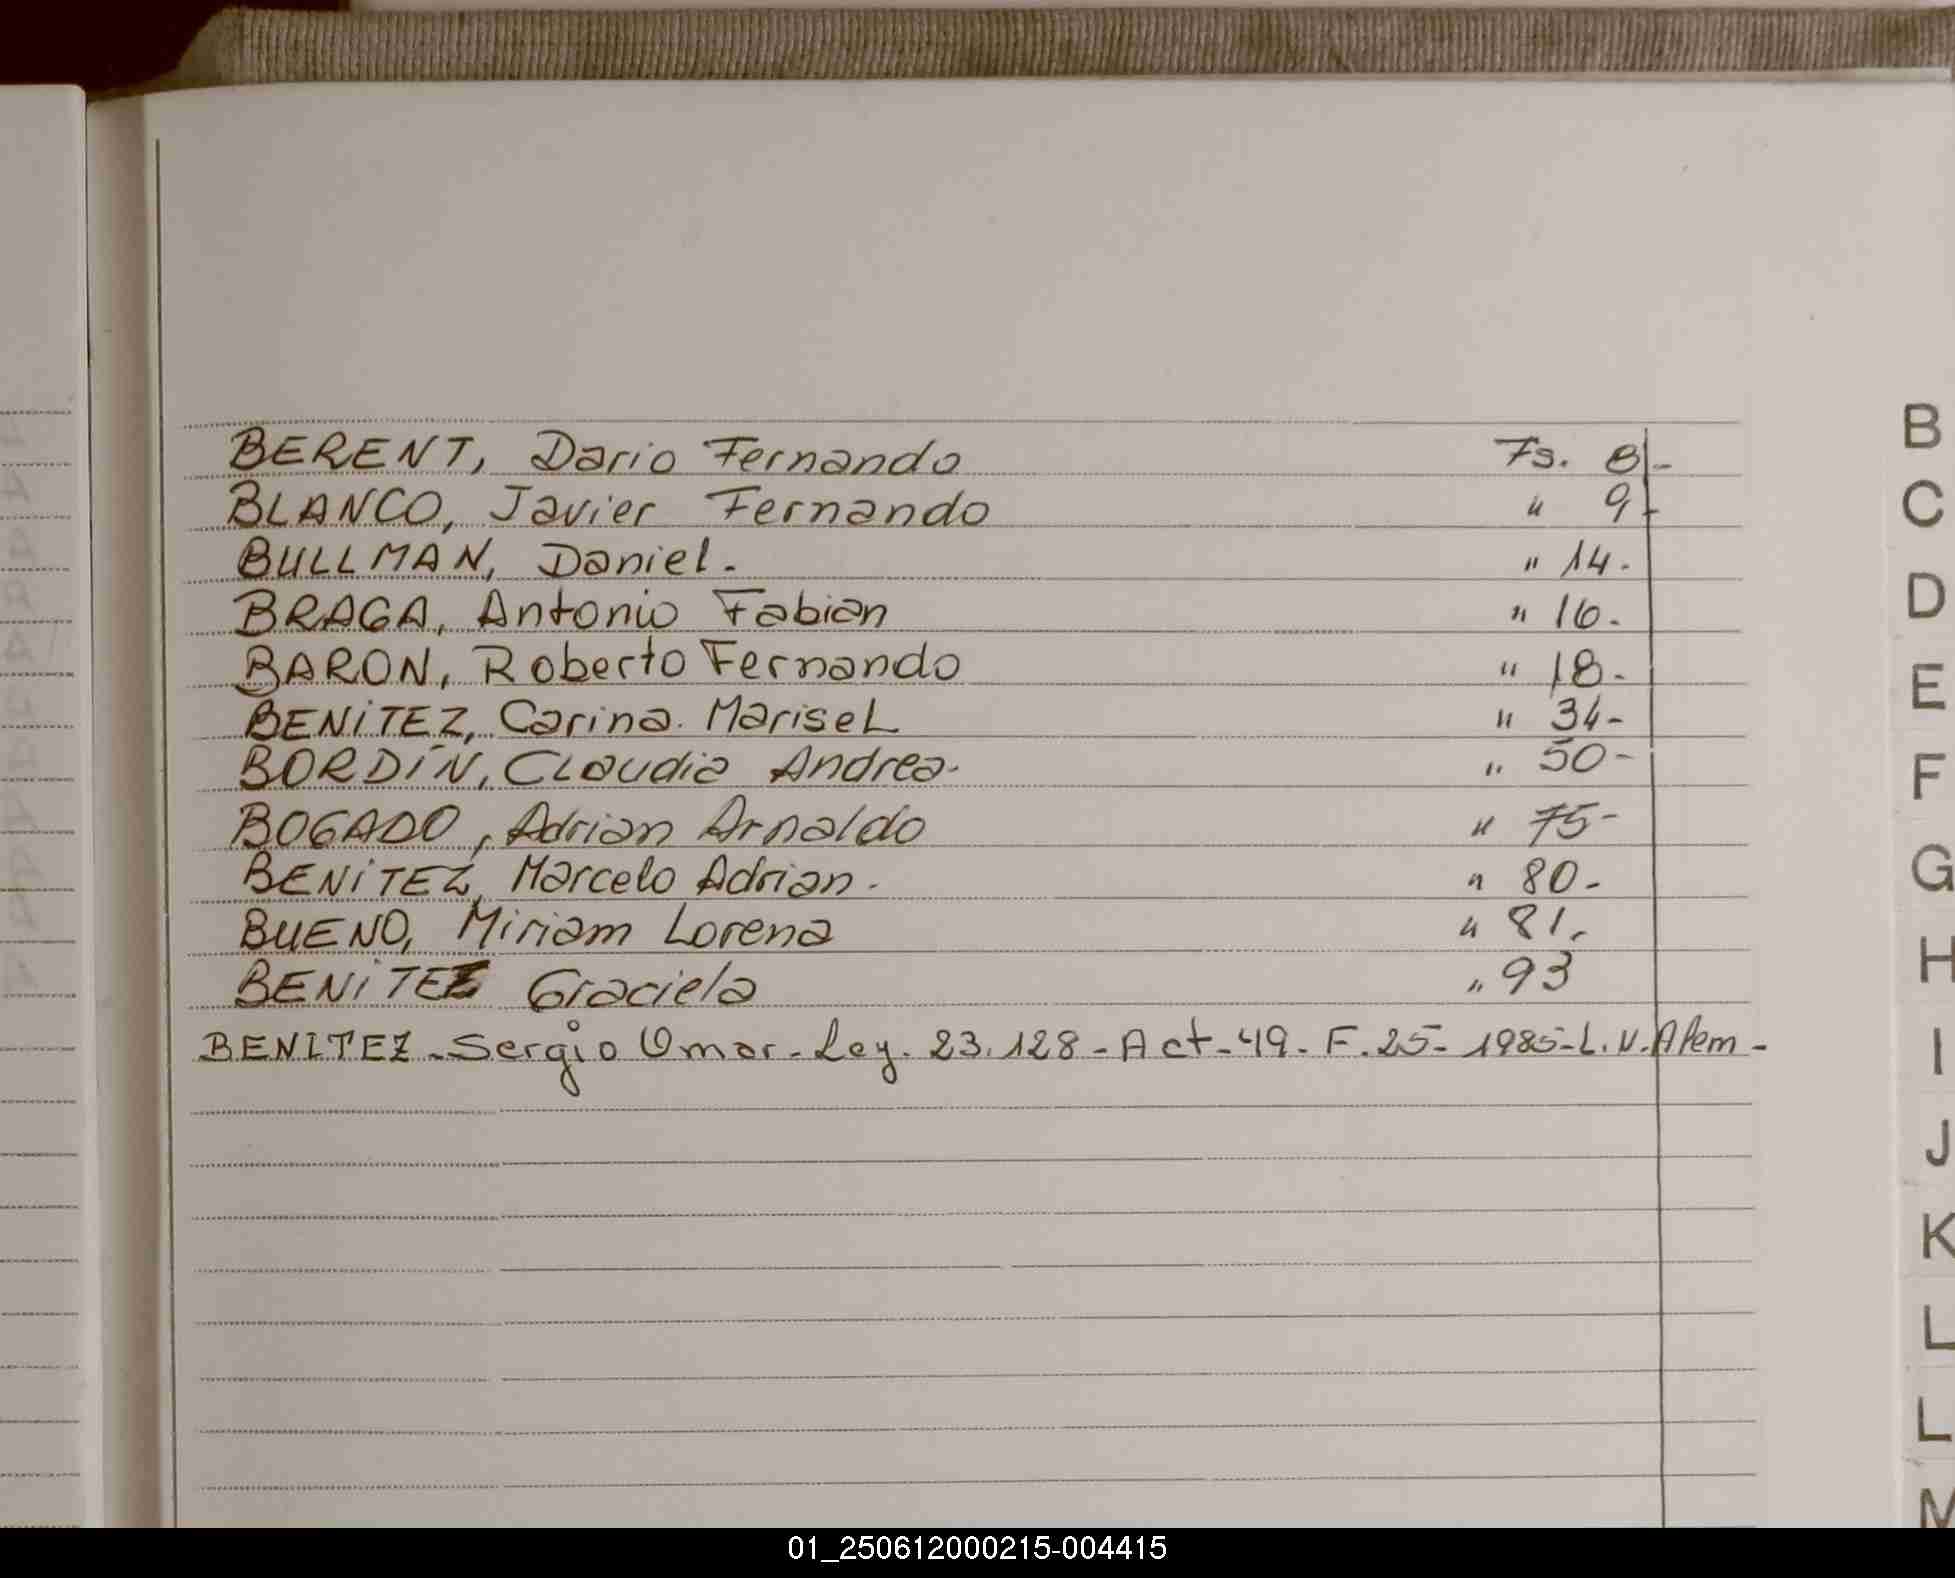 BERENT, Dario Fernando Fs. 8-
BLANCO, Javier Fernando " 9-
BULLMAN, Daniel. " 14.
BRAGA, Antonio Fabian " 16.
BARON, Roberto Fernando " 18-
BENITEZ, Carina Marisel " 34-
BORDIN, Claudia Andrea. " 50-
BOGADO, Adrian Arnaldo " 75-
BENITEZ, Marcelo Adrian. " 80-
BUENO, Miriam Lorena " 81.
BENITEZ Graciela " 93
BENITEZ - Sergio Omar - Ley. 23.128 - Act - 49 - F. 25 - 1985 - L. N. Alem -
B
C
D
E
F
G
H
I
J
K
L
L
M
01_250612000215-004415